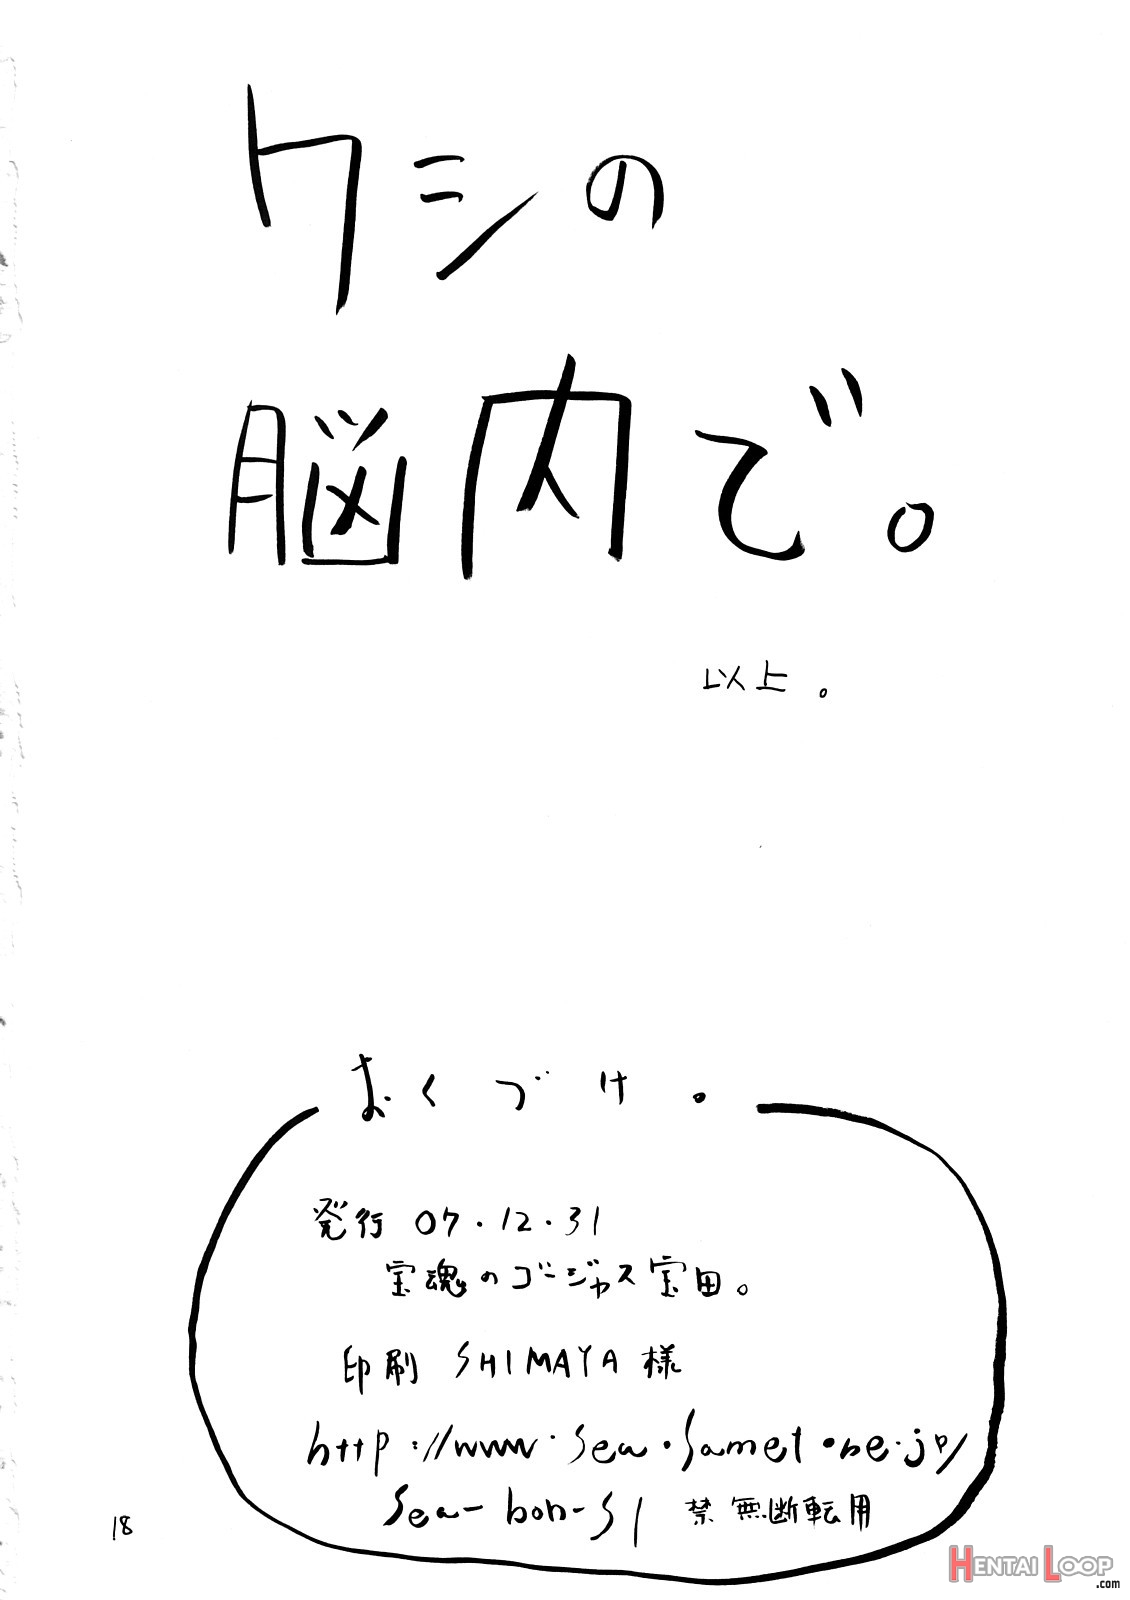 ワシの
脳内で。
以上。
おくづけ。
発行 07.12.31
宝魂のゴージャス宝田。
印刷 SHIMAYA様
http://www.sea.samet.ne.jp/
sea-bon-sl 禁無断転用
18
HENTAI LOOP
.com